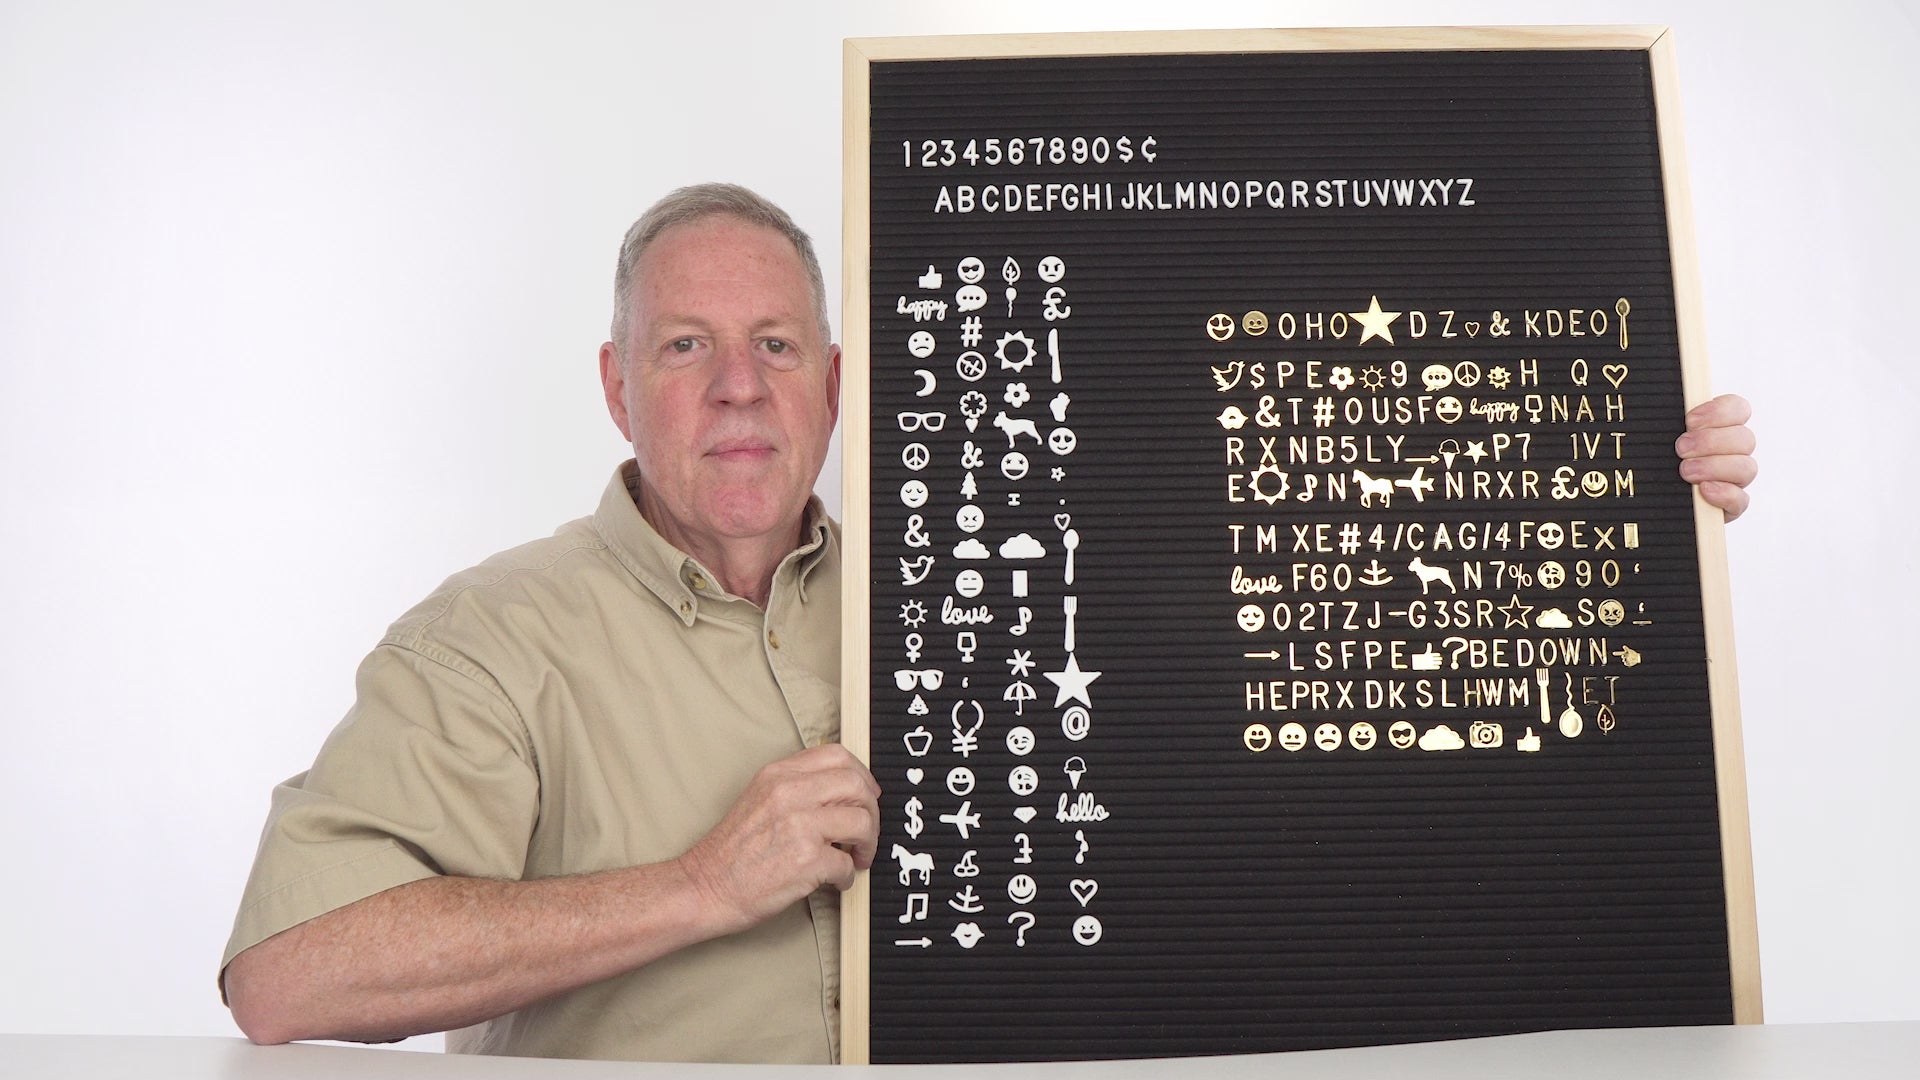 1234567890$¢
ABCDEFGHIJKLMNOPQRSTUVWXYZ
happy
£
#
&
&
love
*
‘
()
¥
@
$
hello
?
OHO DZ & KDEO
$PE 9 H Q
&T#OUSF happy NAH
RXNB5LY P7 1VT
E N NRXR £ M
TMXE#4/CAG/4F EX
love F60 N7% 90 ‘
02TZJ-G3SR S
LSFPE ?BEDOWN
HEPRXDKSLHWM ET